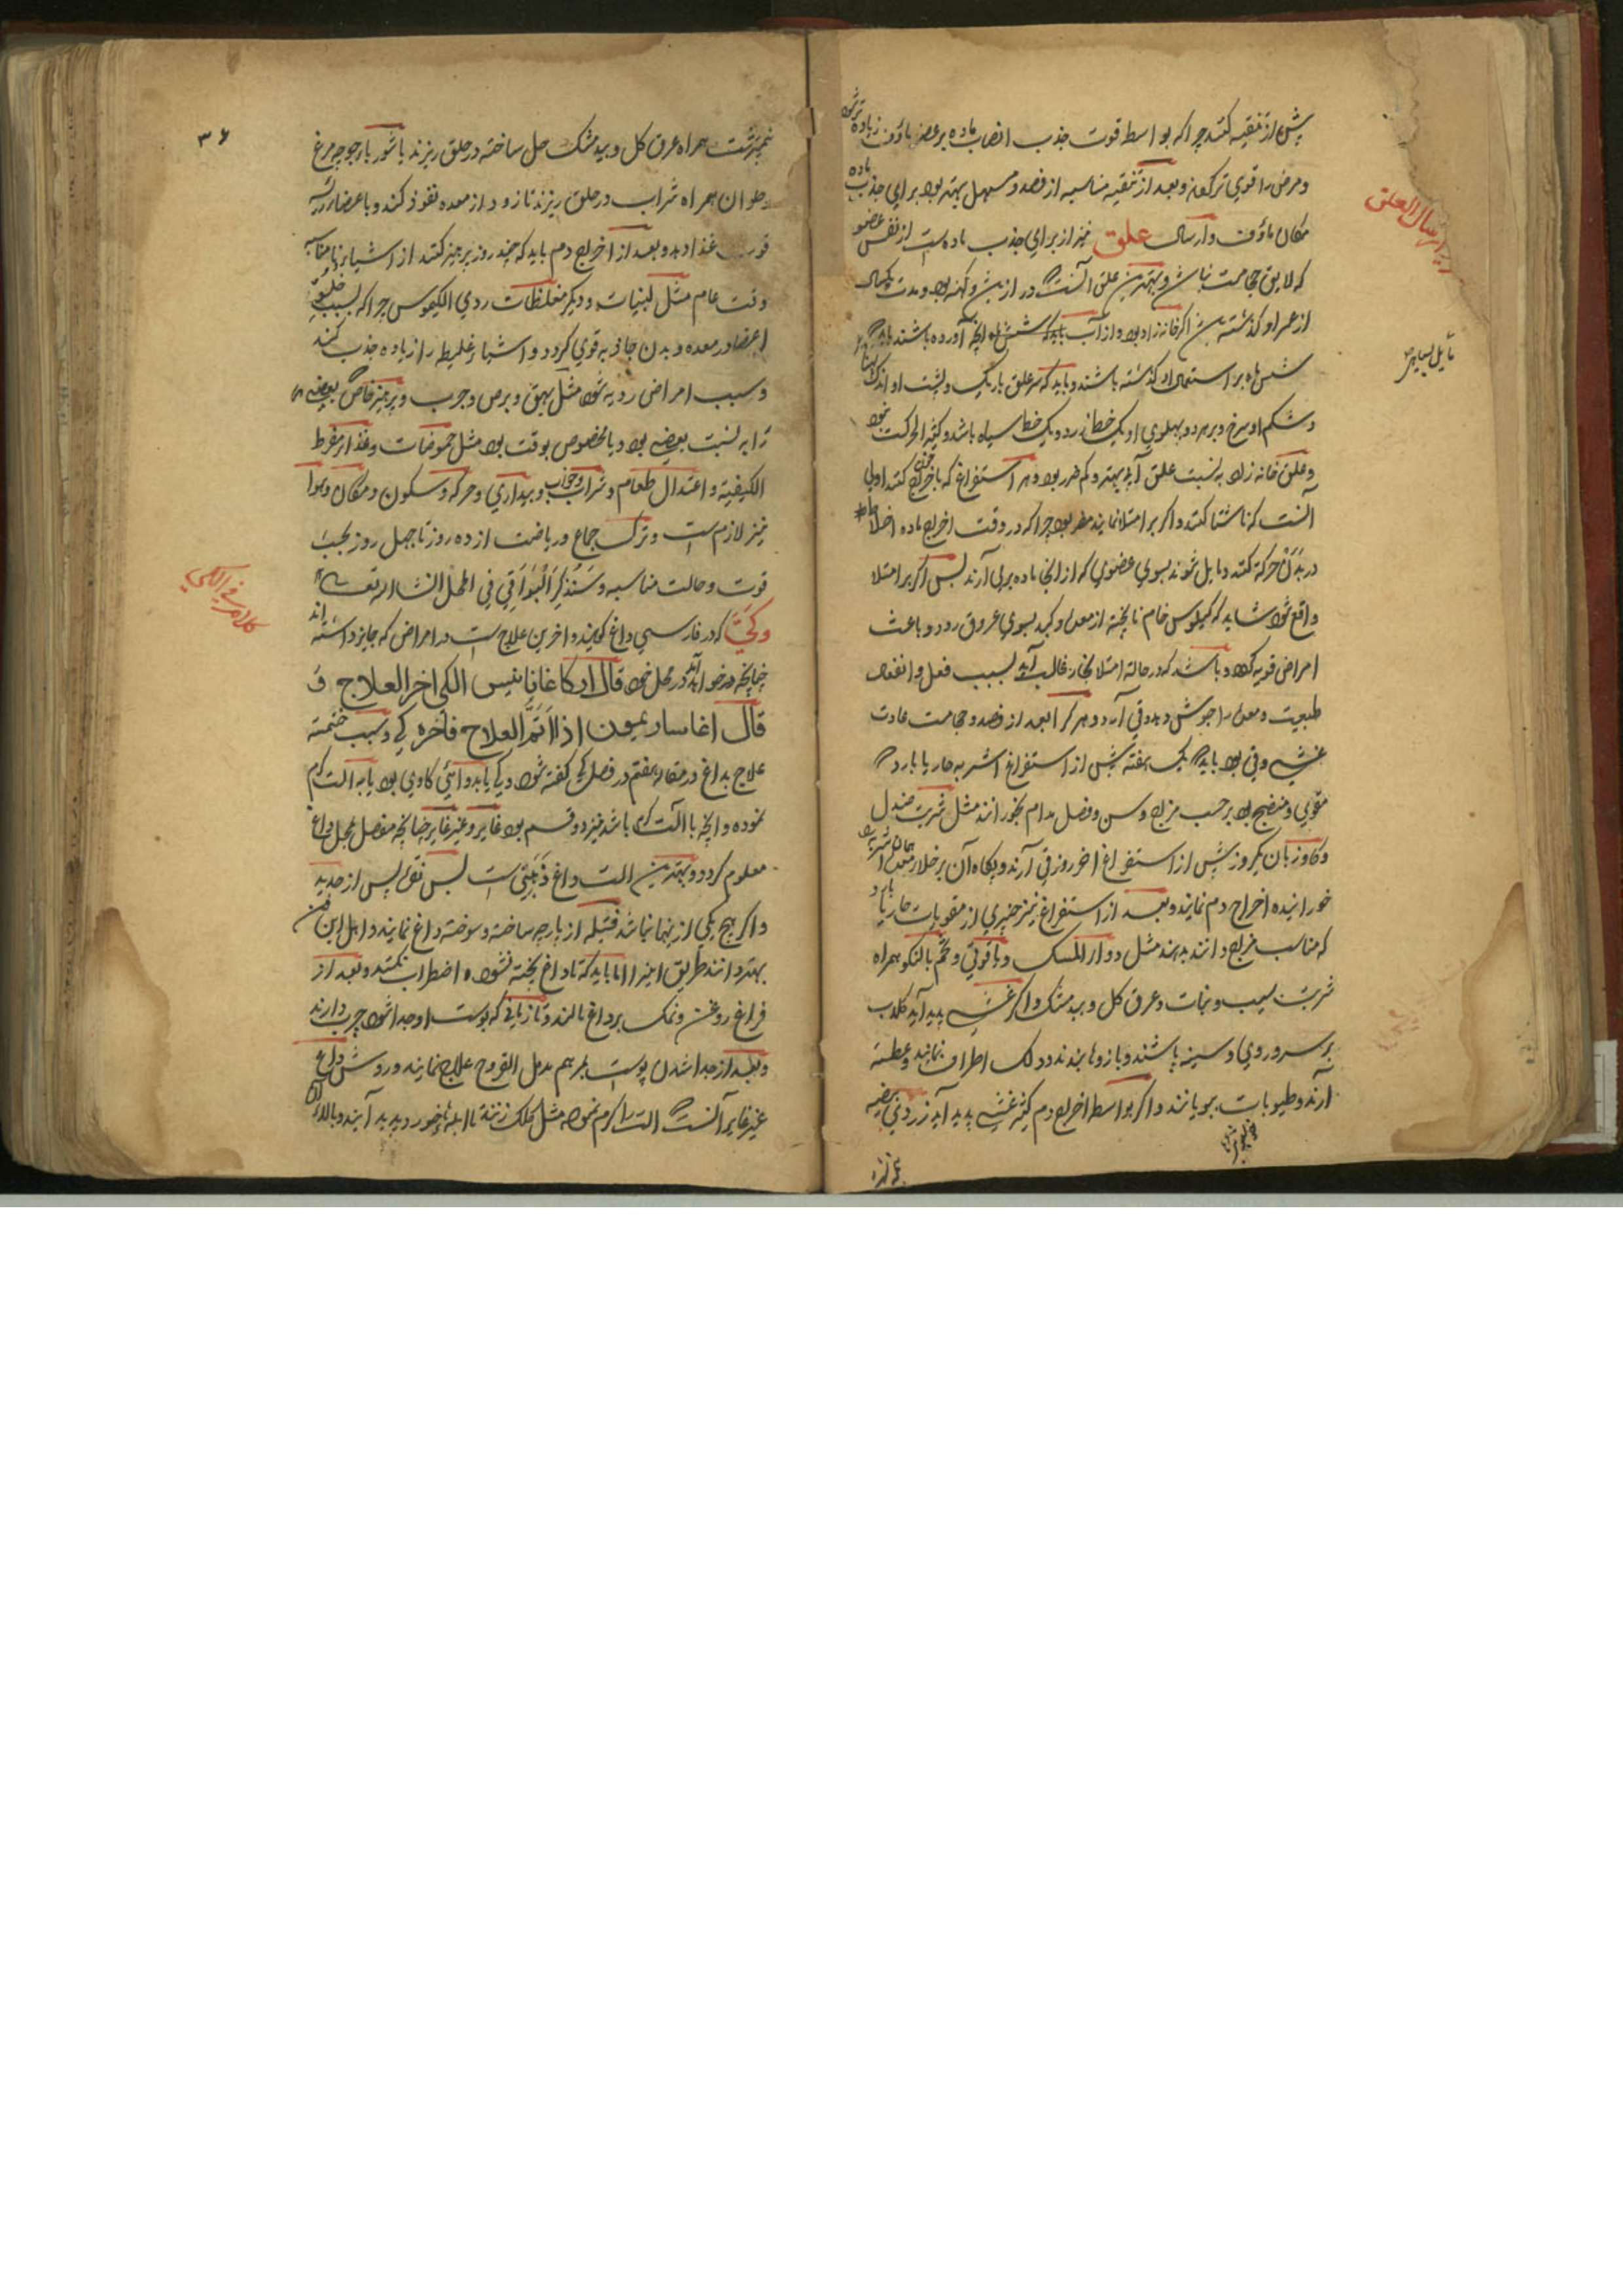 پیش از تنقیه کنند چرا که بواسطه قوت جذب انصاب ماده بر عضو ماؤف زیاده تر شود
و مرض را قوی تر کند و بعد از تنقیه مناسبه از فصد و مسهل بهتر بود برای جذب ماده
مکان ماؤف و ارسال علق نیز از برای جذب ماده است از نفس عضو
که لایق حجامت نباشد و بهترین علق آنست که در از بین و کهنه بود و مدت یکسال
از عمر او گذشته اگر خانه زاد بود و از آب باید که شش ماه آنچه آورده باشند
شش ماه بر استعمال او گذشته باشند و باید که سر علق باریک و پشت او اندک
و شکم او سرخ و بر هر دو پهلوی او یک خط زرد و یک خط سیاه باشد و کثیر الحرکت بود
و علق خانه زاد به نسبت علق آبی بهتر و کم ضرر بود و هر استفراغ که باخراج خون کنند اولی
آنست که ناشتا کنند و اگر بر امتلا نمایند مضر بود چرا که در وقت اخراج ماده اخلاط
در بدن حرکة کنند و مایل شوند بسوی عضوی که از انجا ماده بر می آرند پس اگر بر امتلا
واقع شود شاید که کیلوس خام ناپخته از معده و کبد بسوی عروق رود و باعث
امراض قویه گردد و باشد که در حالة امتلا بخار غالب آید بسبب فعل و انفعال
طبیعت و معده را جوش دهد و قی آرد و هر کرا بعد از فصد و حجامت عادت
غشی و قی بود باید که یک هفته پیش از استفراغ اشربه حار یا بارد که
مقوی و منضج بود بر حسب مزاج و سن و فصل مدام بخورانند مثل شربت صندل
و گاوزبان یک روز پیش از استفراغ اخر روز قی آرند و پگاه آن بر خلاء معده همان شربت
خورانیده اخراج دم نمایند و بعد از استفراغ نیز چیزی از مقویات حار یا بارد
که مناسب مزاج دانند بدهند مثل دواء المسک و یاقوتی و تخم بالنگو همراه
شربت سیب و نبات و عرق گل و بید مشک و اگر غشی پدید آید گلاب
بر سر و روی و سینه پاشند و بازوها بندند و دلک اطراف نمایند و عطسه
آرند و طیوبات ببویانند و اگر بواسطه اخراج دم کثیر غشی پدید آید زردی بیضه
نیمبرشت
در ارسال العلق
۳۶
نیمبرشت همراه عرق گل و بید مشک حل ساخته در حلق ریزند یا شوربا جوجه مرغ
و حلوان همراه شراب در حلق ریزند تا زود از معده نفوذ کند و باعضاء رسد
قوت غذا دهد و بعد از اخراج دم باید که چند روز پرهیز کنند از اشیاء نامناسبه
وقت عام مثل لبنیات و دیگر مغلظات ردی الکیموس چرا که بسبب خلو
اعضا و معده و بدن جاذبه قوی گردد و اشیاء غلیظ را زیاده جذب کند
و سبب امراض ردیه شود مثل بهق و برص و جرب و پرهیز خاص بعضی
را به نسبت بعضی بود و بالخصوص بوقت بود مثل حموضات و غذاء مفرط
الکیفیة و اعتدال طعام و شراب و خواب و بیداری و حرکة و سکون و مکان و هوا
نیز لازم است و ترک جماع و ریاضت از ده روز تا چهل روز بحسب
قوت و حالت مناسبه و سنذکر البواقی فی المحل انشاء الله تعالی
و کی که در فارسی داغ گویند و اخرین علاج است در امراض که جایز داشته اند
چنانچه مذکور خواهد آمد در محل خود قال ارکاغانانیس الکی اخر العلاج و
قال اغاساریمیون اذا اتم العلاج فاخره کی و سبب ختمیة
علاج بداغ در مقاله هفتم در فصل کی گفته شود و کی یا بدوائی کاوی بود یا به آلت گرم
نموده و آنچه با آلت گرم باشد نیز دو قسم بود غایر و غیر غایر چنانچه مفصل بمحل داغ
معلوم گردد و بهترین آلت داغ ذهبی است پس نقره پس از حدید
و اگر هیچ یکی از اینها نباشد فتیله از پارچه ساخته و سوخته داغ نمایند و اهل این فن
بهتر دانند طریق این را اما باید که تا داغ پخته نشود اضطراب نکنند و بعد از
فراغ روغن و نمک بر داغ مالند و تا زمانی که پوست او جدا شود چرب دارند
و بعد از جدا شدن پوست بمرهم مدمل القروح علاج نمایند و روش داغ
غیر غایر آنست که آلت را گرم نموده مثل کلک زنند تا ابله پدید آیند و بالای آن
کلام فی الکی